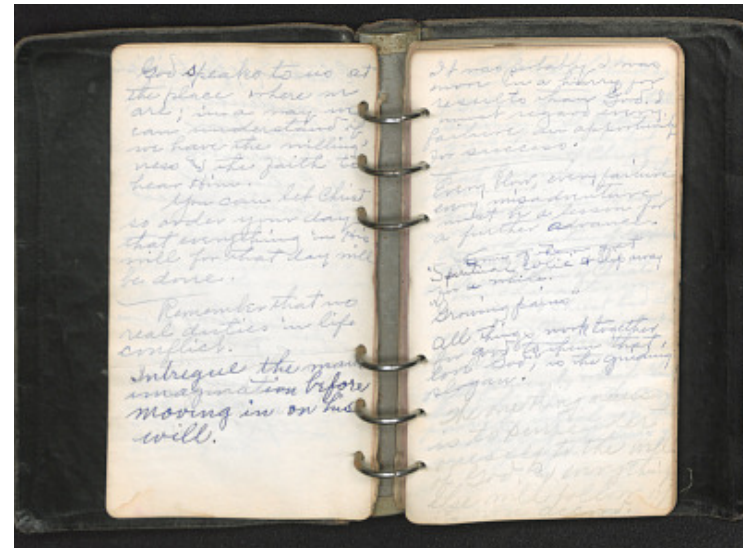 God speaks to us at
the place where we
are, in a way we
can understand if
we have the willing-
ness & the faith to
hear Him.
You can let Christ
so order your day
that everything in His
will for that day will
be done.
Remember that no
real duties in life
conflict.
Intregue the man's
imagination before
moving in on his
will.
It was probably I was
more in a hurry for
results than God. I
must regard every
failure an opportunity
for success.
Every blow, every failure
every misadventure
must be a lesson for
a further advance.
"Spiritual colic
"Growing pains"
All things work together
for good to them that
love God, is the guiding
slogan.
The one thing
is to
to the will
of God &
the will